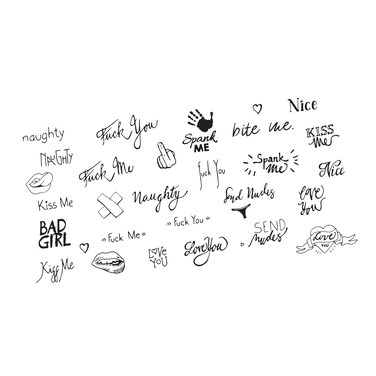 Nice
naughty
Fuck You
Spank
ME
bite me.
KISS
Me
NAUGHTY
Fuck Me
Fuck You
Spank
ME
Nice
Kiss Me
Naughty
Send Nudes
Love
You
BAD
GIRL
"Fuck Me"
"Fuck You"
SEND
nudes
Love
YOU
Kiss Me
LOVE
YOU
Love You